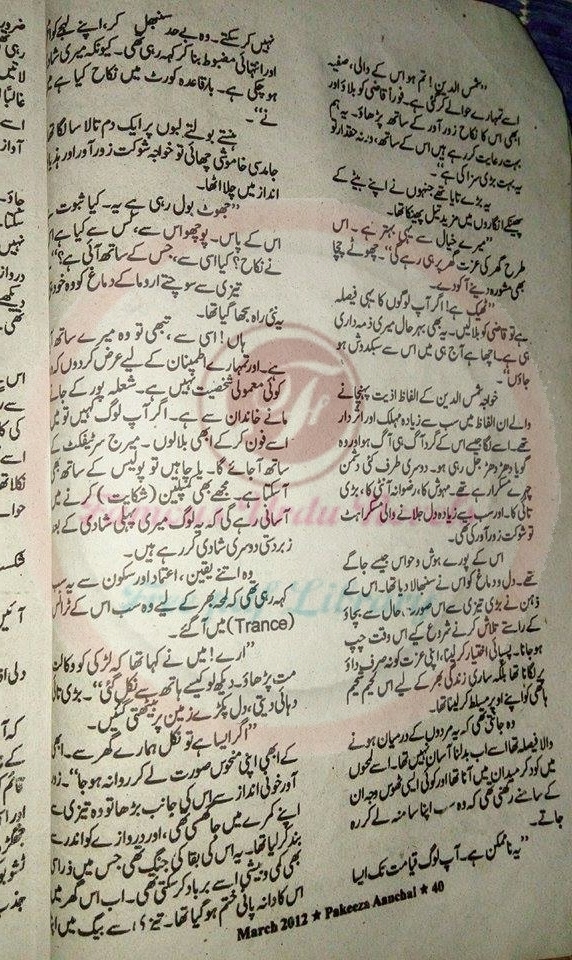 ”شمس الدین! تم ہو اس کے والی، صفیہ
اسے تمہارے حوالے کر گئی ہے۔ فوراً قاضی کو بلاؤ اور
ابھی اس کا نکاح زور آور کے ساتھ پڑھاؤ۔ یہ ہم
بہت رعایت کر رہے ہیں اس کے ساتھ، ورنہ حقدار تو
یہ بہت بڑی سزا کی ہے۔“
یہ بڑے تایا تھے جنہوں نے اپنے بیٹے کے
پھینکے انگاروں میں مزید تیل پھینکا تھا۔
”میرے خیال سے یہی بہتر ہے۔ اس
طرح گھر کی عزت گھر پر ہی رہے گی“۔ چھوٹے چچا
بھی مشورہ دینے آ کودے۔
”ٹھیک ہے! اگر آپ لوگوں کا یہی فیصلہ
ہے تو قاضی کو بلا لیں۔ یہ بھی بہرحال میری ذمہ داری
ہی ہے۔ اچھا ہے آج ہی میں اس سے سبکدوش ہو
جاؤں“۔
خواجہ شمس الدین کے الفاظ اذیت پہنچانے
والے ان الفاظ میں سب سے زیادہ مہلک اور اثر دار
تھے۔ اسے لگا جیسے اس کے گرد آگ ہی آگ ہو اور وہ
گویا دھڑ دھڑ جل رہی ہو۔ دوسری طرف کئی دشمن
چہرے مسکرا رہے تھے۔ مہوش کا، رضوانہ آنٹی کا، بڑی
تائی کا۔ اور سب سے زیادہ دل جلانے والی مسکراہٹ
تو شوکت زور آور کی تھی۔
اس کے پورے ہوش و حواس جیسے جاگے
تھے۔ دل و دماغ کو اس نے سنبھالا دیا تھا۔ اس کے
ذہن نے بڑی تیزی سے اس صورتحال سے بچاؤ
کے راستے تلاش کرنے شروع کیے اس وقت چپ
ہو جانا۔ پسپائی اختیار کر لینا، اپنی عزت کو نہ صرف داؤ
پر لگانا تھا بلکہ ساری زندگی بھر کے لیے اس لحیم شحیم
ہاتھی کو اپنے اوپر مسلط کر لینا تھا۔
وہ جانتی تھی کہ یہ مردوں کے درمیان ہونے
والا فیصلہ تھا اسے اب بدلنا آسان نہیں تھا۔ اسے لمحوں
میں کود کر میدان میں آنا تھا اور کوئی ایسی ٹھوس وجہ ان
کے سامنے رکھنی تھی کہ وہ سب اپنا سا منہ لے کر رہ
جاتے۔
”یہ ناممکن ہے۔ آپ لوگ قیامت تک ایسا
نہیں کر سکتے۔ وہ بے حد سنبھل کر، اپنے لہجے کو
اور انتہائی مضبوط بنا کر کہہ رہی تھی۔ کیونکہ میری
ہو چکی ہے۔ باقاعدہ کورٹ میں نکاح کیا ہے
نے“۔
ہنستے بولتے لبوں پر ایک دم تالا سا لگا تھا
جامدی خاموشی چھائی تو خواجہ شوکت زور آور
انداز میں چلا اٹھا۔
”جھوٹ بول رہی ہے یہ۔ کیا ثبوت
اس کے پاس۔ پوچھو اس سے، کس سے کیا ہے
نے نکاح؟ کیا اسی سے، جس کے ساتھ آئی ہے؟“
تیزی سے سوچتے اروما کے دماغ کو وہ خود
یہ نئی راہ سجھا گیا تھا۔
ہاں! اسی سے، تبھی تو وہ میرے ساتھ
ہے۔ اور تمہارے اطمینان کے لیے عرض کر دوں کہ
کوئی معمولی شخصیت نہیں ہے۔ شعلہ پور کے جانے
مانے خاندان سے ہے۔ اگر آپ لوگ کہیں تو میں
اسے فون کر کے ابھی بلا لوں۔ میرج سرٹیفکٹ کے
ساتھ آ جائے گا۔ یا چاہیں تو پولیس کے ساتھ بھی
آ سکتا ہے۔ مجھے بھی کمپلین (شکایت) کرنے میں
آسانی رہے گی کہ یہ لوگ میری پہلی شادی کے بعد
زبردستی دوسری شادی کر رہے ہیں۔
وہ اتنے یقین، اعتماد اور سکون سے یہ سب
کہہ رہی تھی کہ لمحہ بھر کے لیے وہ سب اس کے ٹرانس
(Trance) میں آ گئے۔
”ارے! میں نے کہا تھا کہ لڑکی کو وکالت
مت پڑھاؤ۔ دیکھ لو کیسے ہاتھ سے نکل گئی“۔ بڑی تائی
دہائی دیتی، دل پکڑے زمین پر بیٹھتی گئیں۔
”اگر ایسا ہے تو نکل ہمارے گھر سے۔ ابھی
کے ابھی اپنی منحوس صورت لے کر روانہ ہو جا“۔ زور
آور خونی انداز سے اس کی جانب بڑھا تو وہ تیزی سے
اپنے کمرے میں جا گھسی تھی، اور دروازے کو اندر سے
بند کر لیا تھا۔ یہ اس کی بقا کی جنگ تھی جس میں ذرا سی
بھی کمی و بیشی اسے برباد کر سکتی تھی۔ اب اس گھر میں
اس کا دانہ پانی ختم ہو گیا تھا۔ تیزی سے بیگ میں
March 2012 ★ Pakeeza Aanchal ★ 40